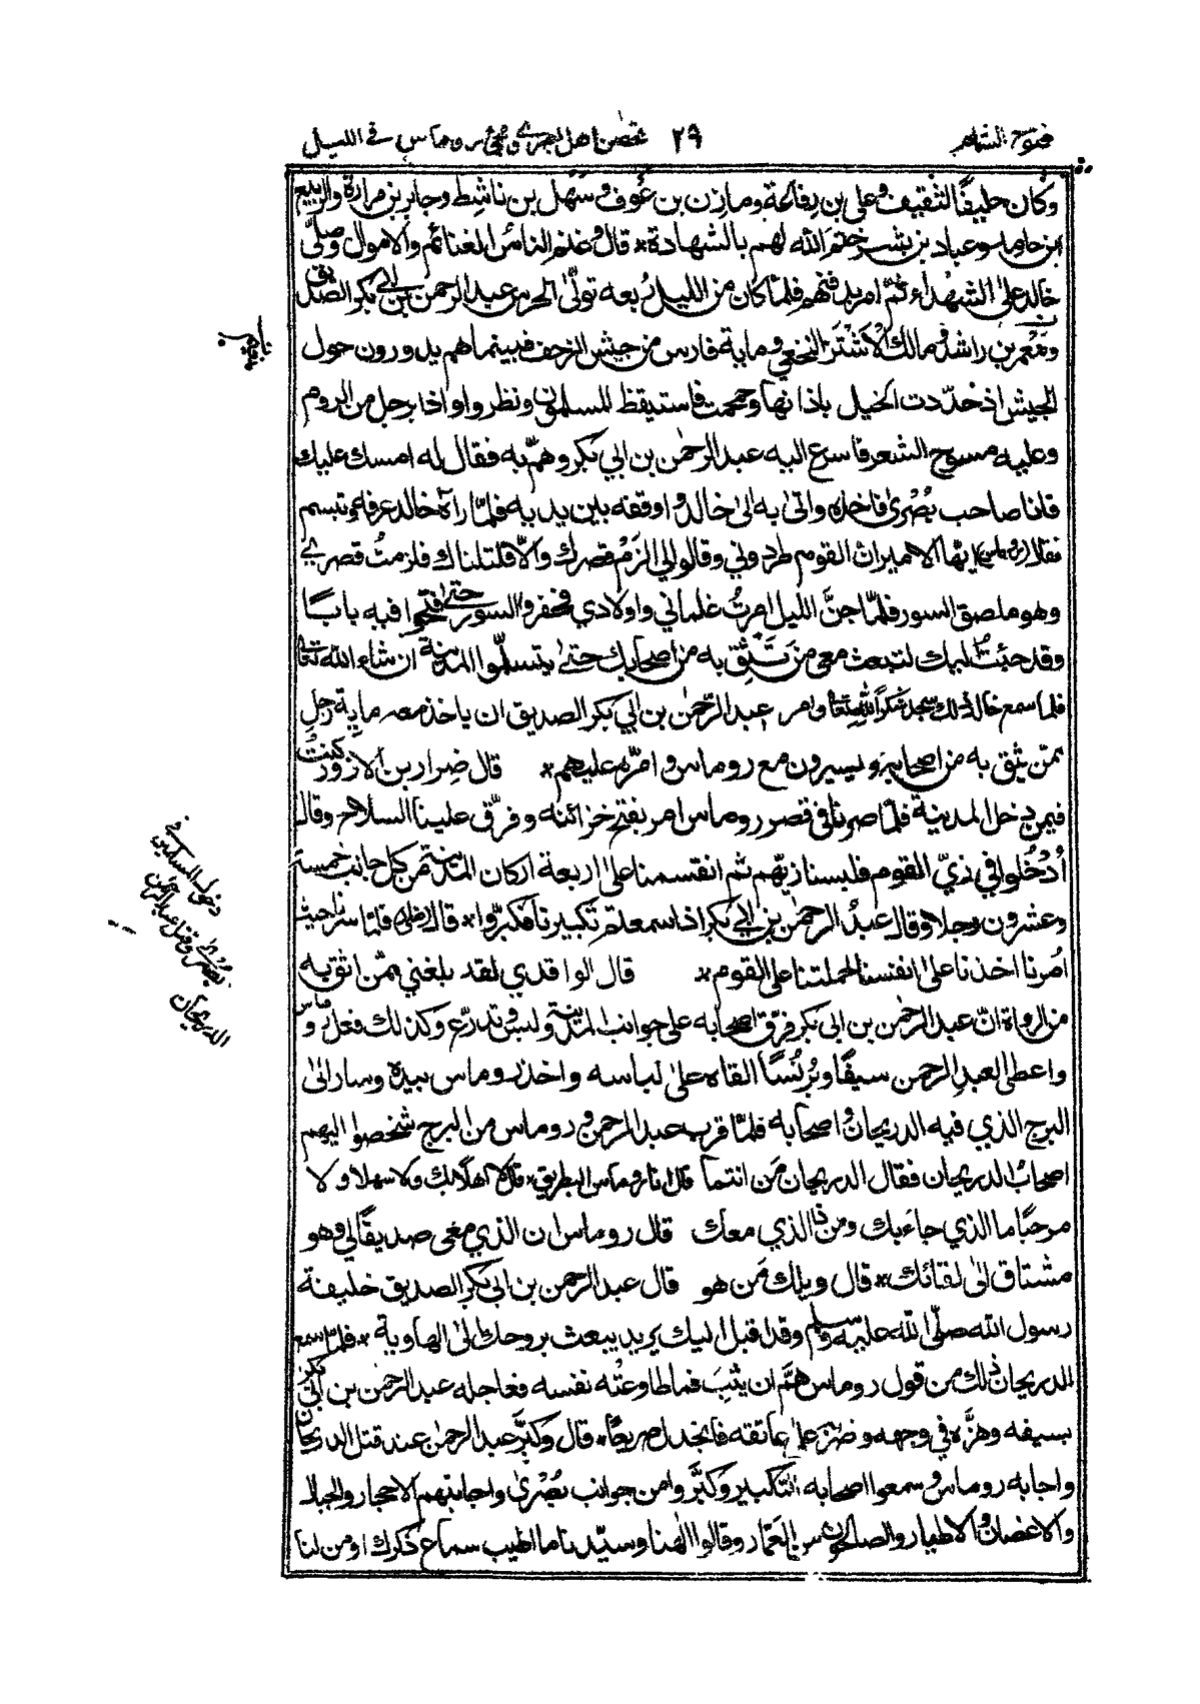 فتوح الشام ٢٩ تحصن اهل بصرى ومجئ روماس فى الليل
وكان حليفًا لثقيف وعلي بن رفاعة ومازن بن عوف وسهل بن ناشط وجابر بن مرارة والربيع
ابن حامد وعباد بن بشر ختم الله لهم بالشهادة * قال وغنم الناس الغنائم والاموال وصلّى
خالد على الشهداء ثم امر بدفنهم فلمّا كان من الليل ربعه تولّى الحرس عبد الرحمن بن ابي بكر الصديق
ومعمر بن راشد ومالك الاشتر النخعي وماية فارس من جيش الزحف فبينما هم يدورون حول
الجيش اذ حدّدت الخيل باذانها وحمحمت فاستيقظ المسلمون ونظروا واذا برجل من الروم
وعليه مسوح الشعر فاسرع اليه عبد الرحمن بن ابي بكر وهمّ به فقال له امسك عليك
فانا صاحب بُصْرىٰ فاخذه واتى به الى خالد واوقفه بين يديه فلمّا راٰه خالد عرفه وتبسم
فقال روماس ايّها الامير ان القوم طردوني وقالوا لي الزَمْ قصرك والّا قتلناك فلزمتُ قصري
وهو ملصق السور فلمّا جنَّ الليل امرتُ غلماني واولادي فحفروا السور حتى فتحوا فيه بابًا
وقد جئتُ اليك لتبعث معي مَن تَثِق به من اصحابك حتىٰ يتسلّموا المدينة ان شاء الله تعالى
فلما سمع خالد ذلك سجد شكرًا لله تعالى وامر عبد الرحمٰن بن ابي بكر الصديق ان ياخذ معه ماية رجل
ممّن يثق به من اصحابه ويسيرون مع روماس وامّره عليهم * قال ضِرار بن الازور كنتُ
فيمن دخل المدينة فلمّا صرنا في قصر روماس امر بفتح خزائنه وفرّق علينا السلاح وقال
اُدْخُلوا في زيّ القوم فلبسنا زيّهم ثم انقسمنا على اربعة اركان المدينة من كل جانب خمسة
وعشرون رجلا وقال عبدُ الرحمٰن بن ابي بكر اذا سمعتم تكبيرنا فكبّروا * قال فلمّا سرنا حيث
اُمرنا اخذنا علىٰ انفسنا لحملتنا على القوم * قال الواقدي لقد بلغني ممّن اثق به
من الرواة انّ عبد الرحمٰن بن ابي بكر فرّق اصحابه على جوانب المدينة ولبس وتدرّع وكذلك فعل روماس و
واعطى العبد الرحمن سيفًا وبُرْنُسًا القاه علىٰ لباسه واخذ روماس بيده وسار الىٰ
البرج الذي فيه الدريحان واصحابه فلمّا قرب عبد الرحمن وروماس من البرج شخصوا اليهم
اصحابُ الدريحان فقال الدريحان مَن انتما قال انا روماس البطريق * قال لا اهلًا بك ولا سهلا ولا
مرحبًا ما الذي جاءَ بك ومن ذا الذي معك قال روماس ان الذي معي صديقًا لي وهو
مشتاق الىٰ لقائك * قال ويلك مَن هو قال عبد الرحمن بن ابي بكر الصديق خليفة
رسول الله صلّى الله عليه وسلم وقد اقبل اليك يريد يبعث بروحك الىٰ الهاوية * فلمّا سمع
الدريحان ذلك من قول روماس همَّ ان يثِبَ فما طاوعتْه نفسه فعاجله عبد الرحمٰن بن ابي بكر
بسيفه وهزّه في وجهه وضربه على عاتقه فانجدل صريعًا * قال وكبّر عبد الرحمٰن عند قتل الدريحان
واجابه روماس وسمعوا اصحابه التكبير وكبّروا من جوانب بُصْرىٰ واجابتهم الاحجار والجبال
والاغصان والاطيار والصالحون من العمّار وقالوا الٰهنا وسيّدنا ما اطيب سماع ذكرك او من لنا
دخول المسلمين في
بُصرى وقتل عبد الرحمن
الدريحان